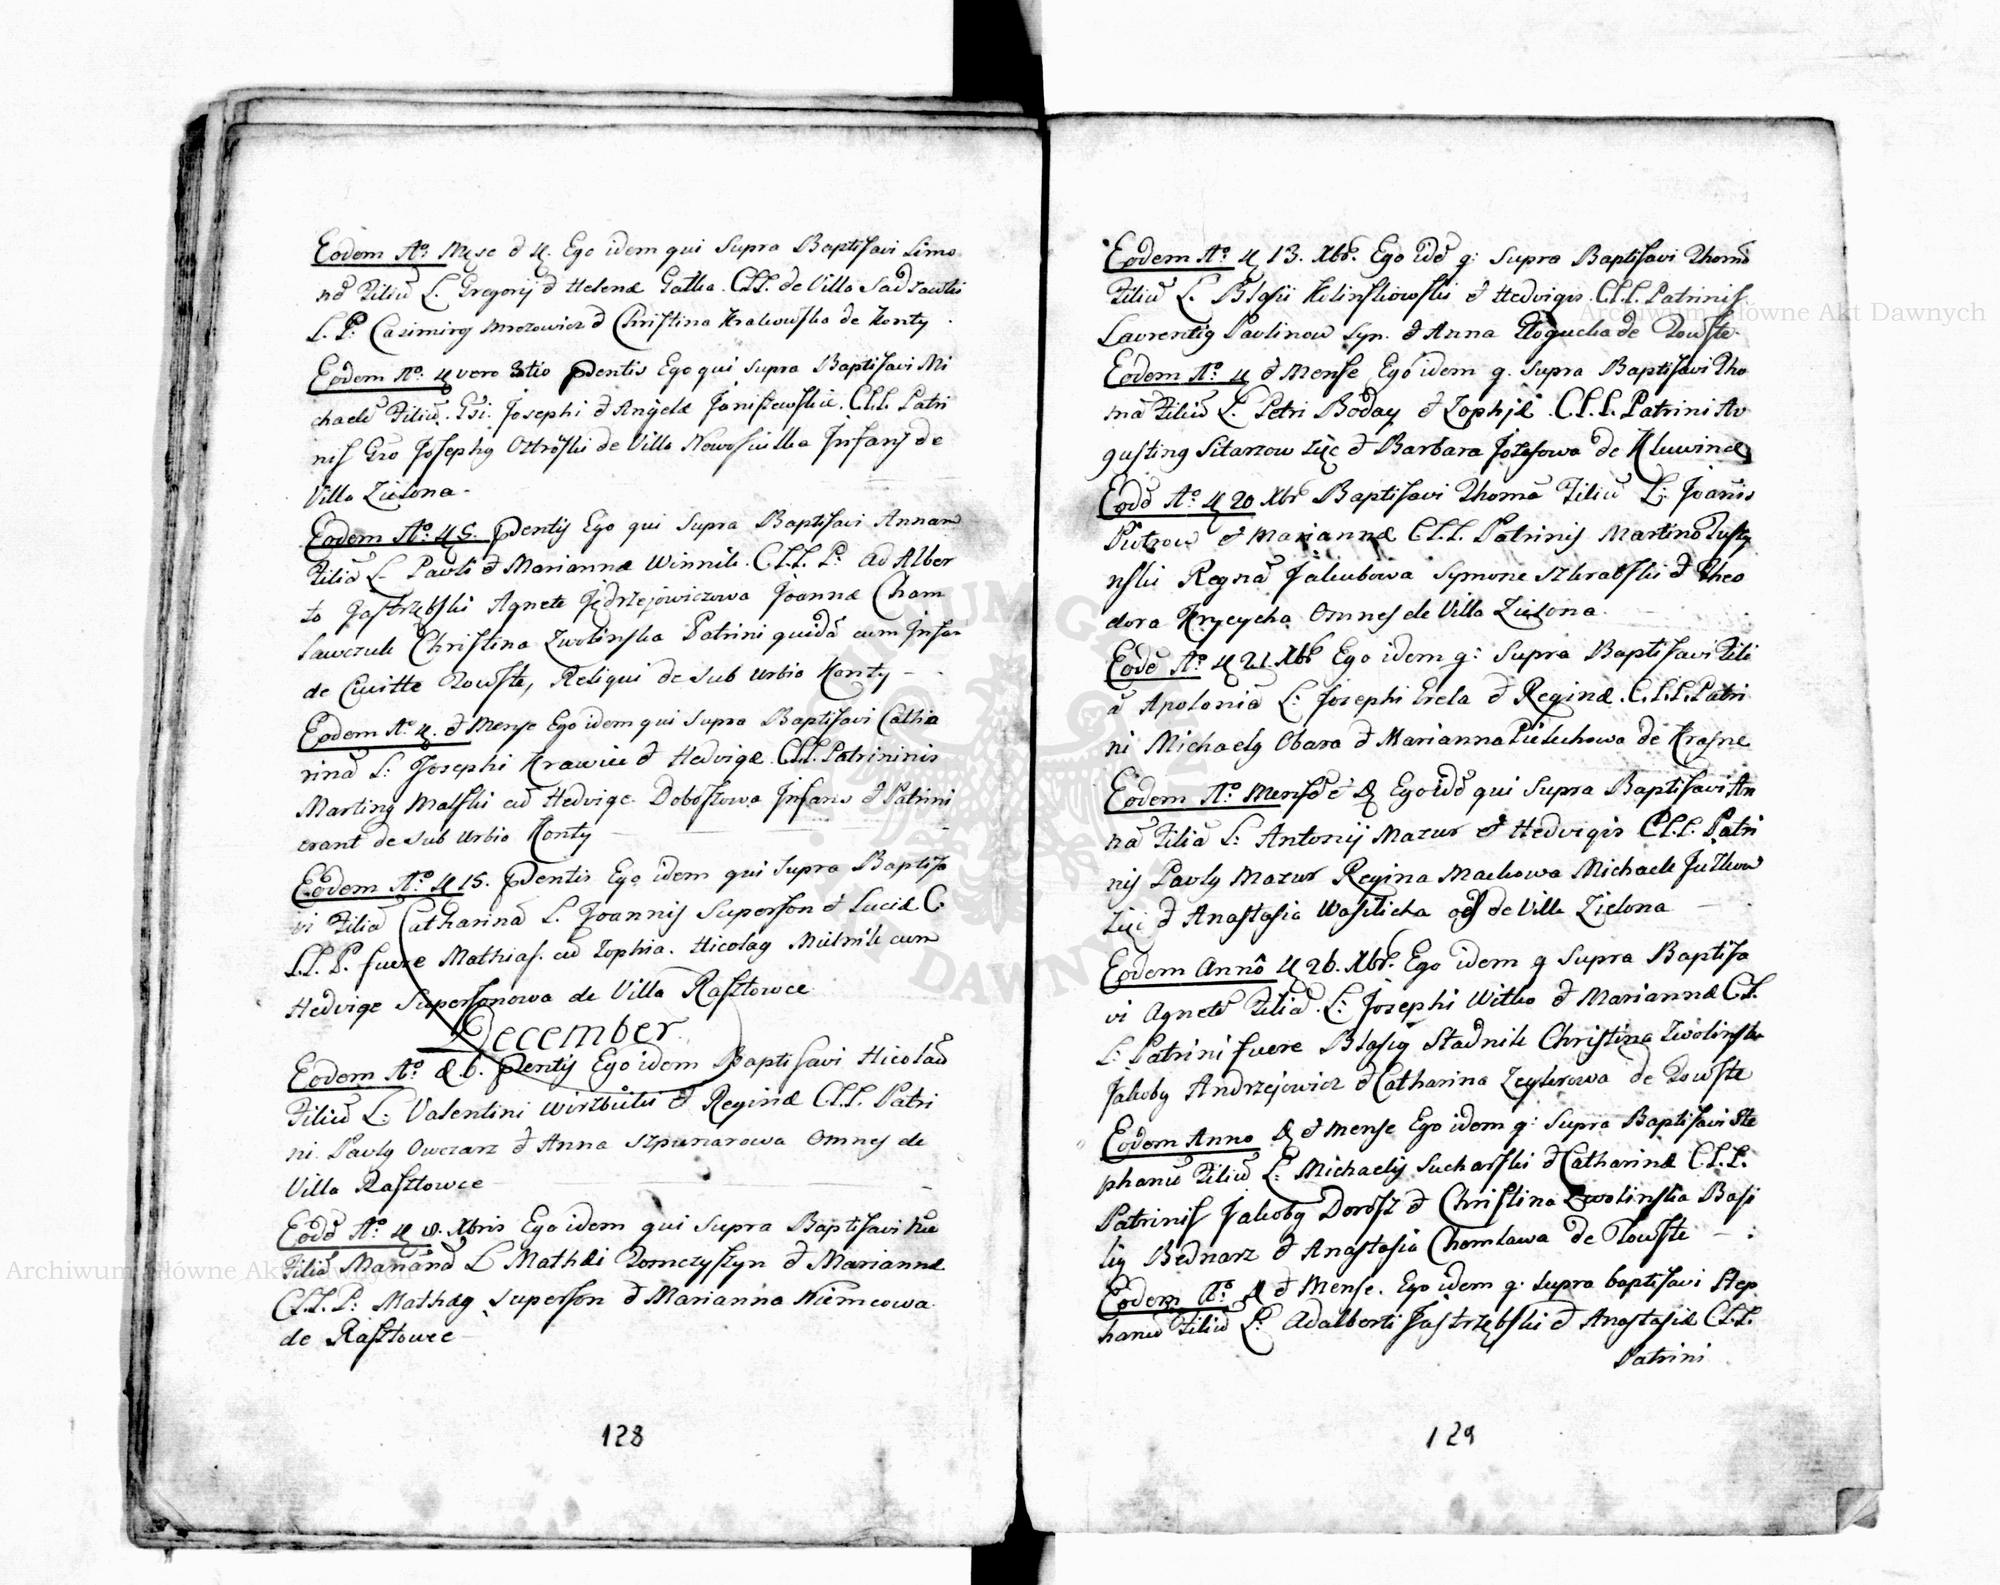 Eodem Aº Mẽse & d. Ego idem qui Supra Baptisavi Simo
nẽ Filiũ L. Gregorij & Helenæ Gatka. C.LL. de Villa Sadzawki
L. P. Casimirg Mrozowicz & Christina Krakowska de Konty
Eodem Aº d vero 3tio pdentis Ego qui Supra Baptisavi Mi
chaelẽ Filiũ. Gsi. Josephi & Angelæ Janiszewskie C.LL. Patri
nis Gso Josephg Ostrõski de Villa Nowosiulka Infans de
Villa Zielona.
Eodem Aº d 5. pdentis Ego qui Supra Baptisavi Annam
Filiã L. Pauli & Mariannæ Winnik. C.LL. P. Ad Alber
to Jastrzębski Agnete Jędrzejowiczowa Joannæ Cham
Sawczuk Christina Zwolinska Patrini quidã cum Infan
de Civitte Touste, Reliqui de Sub urbio Konty
Eodem Aº d. & Mense Ego idem qui Supra Baptisavi Catha
rinã L: Josephi Krawiec & Hedvigæ C.LL. Patrininis
Marting Malski cũ Hedvige Doboszowa Infans & Patrini
erant de Sub urbio Konty
Eodem Aº d 15. pdentis Ego idem qui Supra Baptisa
vi Filiã Catharinã L. Joannis Superson & Luciæ C.
LL. P. fuere Mathias. cũ Zophia. Nicolag Mielnik cum
Hedvige Supersonowa de Villa Rasztowce
December
Eodem Aº d 6. pdentis Ego idem Baptisavi Nicolaũ
Filiũ L: Valentini Wirzbicki & Reginæ C.LL. Patri
ni Paulg Owczarz & Anna Szpunarowa Omnes de
Villa Rasztowce
Eodẽ Aº d 8. Xbris Ego idem qui Supra Baptisavi
Filiã Mariãnã L Mathæi Tomczyszyn & Mariannæ
C.LL. P: Mathæg Superson & Marianna Niemcowa
de Rasztowce
128
Eodem Aº d 13. Xbr. Ego idẽ q: Supra Baptisavi Thomã
Filiũ L. Blasii Kilinskiowski & Hedvigis. C.LL. Patrinis
Laurentig Paulinow Syn. & Anna Rogucka de Touste.
Eodem Aº d & Mense Ego idem q. Supra Baptisavi Tho
mã Filiũ L. Petri Boday & Zophiæ. C.LL. Patrini Au
gusting Sitarzow Zięc & Barbara Jozefowa de Kluwince
Eodẽ Aº d 20 Xbr Baptisavi Thomã Filiũ L: Joãnis
Piotrow & Mariannæ C.LL. Patrinis Martino Pusty
nski Reginã Jakubowa Symone Szkrabski & Theo
dora Krycycha Omnes de Villa Zielona
Eodẽ Aº d 21 Xbr Ego idem q: Supra Baptisavi Fili
ã Apoloniã L: Josephi Erela & Reginæ. C.LL. Patri
ni Michaelg Obara & Marianna Pielechowa de Krasne
Eodem Aº Mense & d Ego idẽ qui Supra Baptisavi An
nã Filiã L: Antonij Mazur & Hedvigis C.LL. Patri
nis Paulg Mazur Regina Mackowa Michaele Juzkow
Zięc & Anastasia Wasilicha de Villa Zielona
Eodem Annô d 26. Xbr. Ego idem q Supra Baptisa
vi Agnetẽ Filiã. L: Josephi Witko & Mariannæ C.L.
L: Patrini fuere Blasig Stadnik Christina Zwolinska
Jakobg Andrzejowicz & Catharina Zeglerowa de Touste
Eodem Anno d & Mense Ego idem q: Supra Baptisavi Ste
phanũ Filiũ L: Michaelis Sucharski & Catharinæ C.LL.
Patrinis Jakobg Dorosz & Christina Zwolinska Basi
lig Bednarz & Anastasia Chomlawa de Touste
Eodem Aº d & Mense. Ego idem q: Supra baptisavi Step
hanũ Filiũ L: Adalberti Jastrzębski & Anastasiæ C.LL.
Patrini
129
Archiwum Główne Akt Dawnych
Archiwum Główne Akt Dawnych